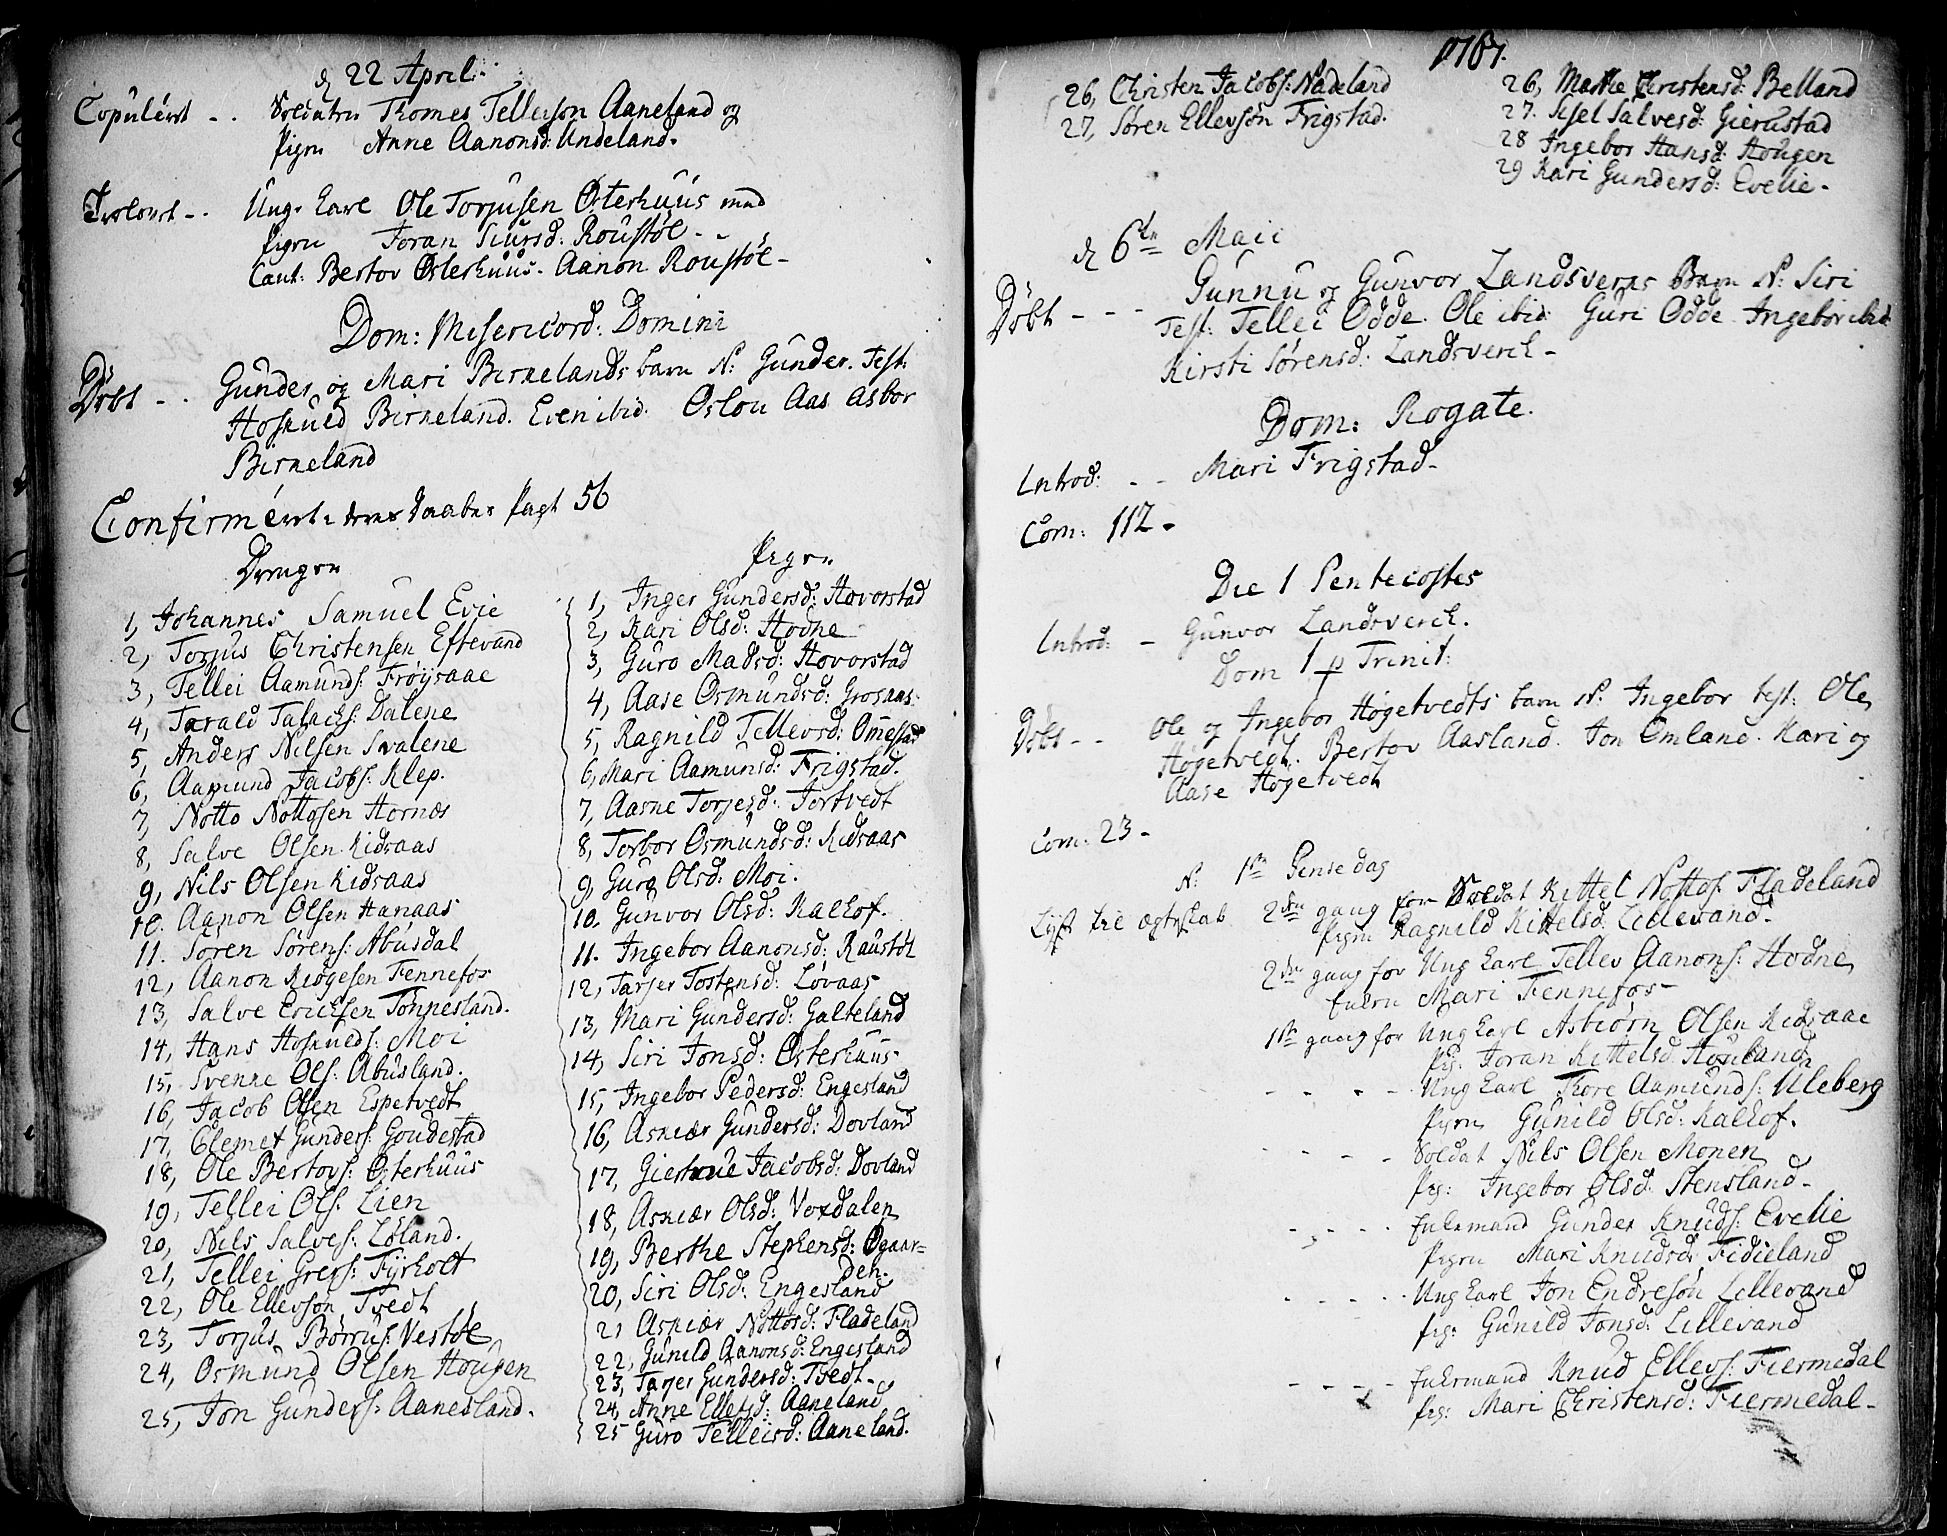 d 22 April.
Copulert - . Soldaten Thomes Tellefson Aaneland og
Pigen Anne Aanonsd: Undeland.
Trolovet - . Ung Karl Ole Torjusen Østerhuus med
Pigen Joran Siursd: Roustøl - -
Caut: Bertov Østerhuus. Aanon Roustøl -
Dom: Misericord: Domini
Døbt - . Gunder og Mari Birkelands barn N: Gunder. Test:
Hoskuld Birkeland. Even ibid. Oslou Aas Asbor
Birkeland
Confirmert i deres Daabes Pagt 56
Drenger
1, Johannes Samuel Evie
2, Torjus Christensen Eftevand
3, Tellei Aamunds: Frøysaae
4, Tarald Talacks: Dalene
5, Anders Nilsen Svalene
6, Aamund Jacobs: Klep.
7, Notto Nottosen Hornes
8, Salve Olsen Kidsaas
9, Nils Olsen Kidsaas
10. Aanon Olsen Hanaas
11. Søren Sørens: Abusdal
12, Aanon Reiersen Fennefos
13, Salve Ericksen Tønnesland.
14, Hans Hoskuds: Moi
15, Svenne Ols: Abusland.
16, Jacob Olsen Espetvedt
17, Clemet Gunders: Goudestad
18, Ole Bertovs: Østerhuus
19, Tellei Ols: Lien
20, Nils Salves: Løland.
21, Tellei Gregs: Fyrholt
22, Ole Ellevson Tvedt
23, Torjus Børrus: Vestøl
24, Osmund Olsen Hougen
25, Jon Gunders: Aanesland.
Pigen
1, Inger Gundersd: Hovorstad
2, Kari Olsd: Hodne
3, Guro Madsd: Hovorstad
4, Aase Osmundsd: Grosaas.
5, Ragnild Tellevsd: Omestad
6, Mari Aamunsd: Frigstad.
7, Aasne Torjesd: Tortvedt
8, Torbor Osmundsd: Kidsaas
9, Guro Olsd: Moi.
10. Gunvor Olsd: Kalhof.
11. Ingebor Aanonsd: Raustøl
12, Tarjer Tostensd: Løvaas
13, Mari Gundersd: Galteland
14, Siri Jonsd: Østerhuus.
15, Ingebor Pedersd: Engesland
16, Askiær Gundersd: Dovland
17, Giertrue Jacobsd: Dovland
18, Askiær Olsd: Voxdalen
19, Berthe Stephensd: Øgaar=
den.
20, Siri Olsd: Engesland
21 Askiær Nottosd: Fladeland
22, Gunild Aanonsd: Engesland
23, Tarjer Gundersd: Tvedt -
24, Anne Ellefsd: Aaneland
25 Guro Telleisd: Aaneland.
1767.
26, Christen Jacobs: Nadeland
27, Søren Ellevson Frigstad.
26, Marthe Christensd: Belland
27. Sisel Salvesd: Gierustad
28 Ingebor Hansd: Hougen
29 Kari Gundersd: Evelie -
d 6te Maii
Døbt - - - Gunnu og Gunvor Landsverks Barn N: Siri
Test: Tellei Odde. Ole ibid: Guri Odde. Ingebor ibid
Kirsti Sørensd: Landsverck -
Dom: Rogate.
Introd: - - Mari Frigstad -
Com: 112 -
Die 1 Pentecostes
Introd: - Gunvor Landsverck.
Dom 1 p Trinit:
Døbt - - Ole og Ingebor Høgetvedts barn N: Ingebor test: Ole
Høgetvedt. Bertov Aasland. Jon Omland. Kari og
Aase Høgetvedt
Com: 23 -
Lyst til ægteskab
2den gang for Soldat Kittel Nottos: Fladeland
Pigen Ragnild Kittelsd: Lillevand -
2den gang for Ung Karl Tellev Aanons: Hodne
Enken Mari Fennefos -
1ste gang for Ung Karl Asbiørn Olsen Kidsaae
Pig: Joran Kittelsd: Houland
- - - - Ung Karl Thore Aamunds: Uleberg
Pigen Gunild Olsd: Kalhof.
- - - - Soldat Nils Olsen Monen
Pig: Ingebor Olsd: Stensland -
- - - - Enkemand Gunder Knuds: Evelie
Pigen Mari Knudsd: Fidieland
- - - - - Ung Karl Jon Endreson Lillevand
pig: Gunild Jonsd: Lillevand
- - - - Enkemand Knud Ellevs: Fiermedal
pig: Mari Christensd: Fiermedal -